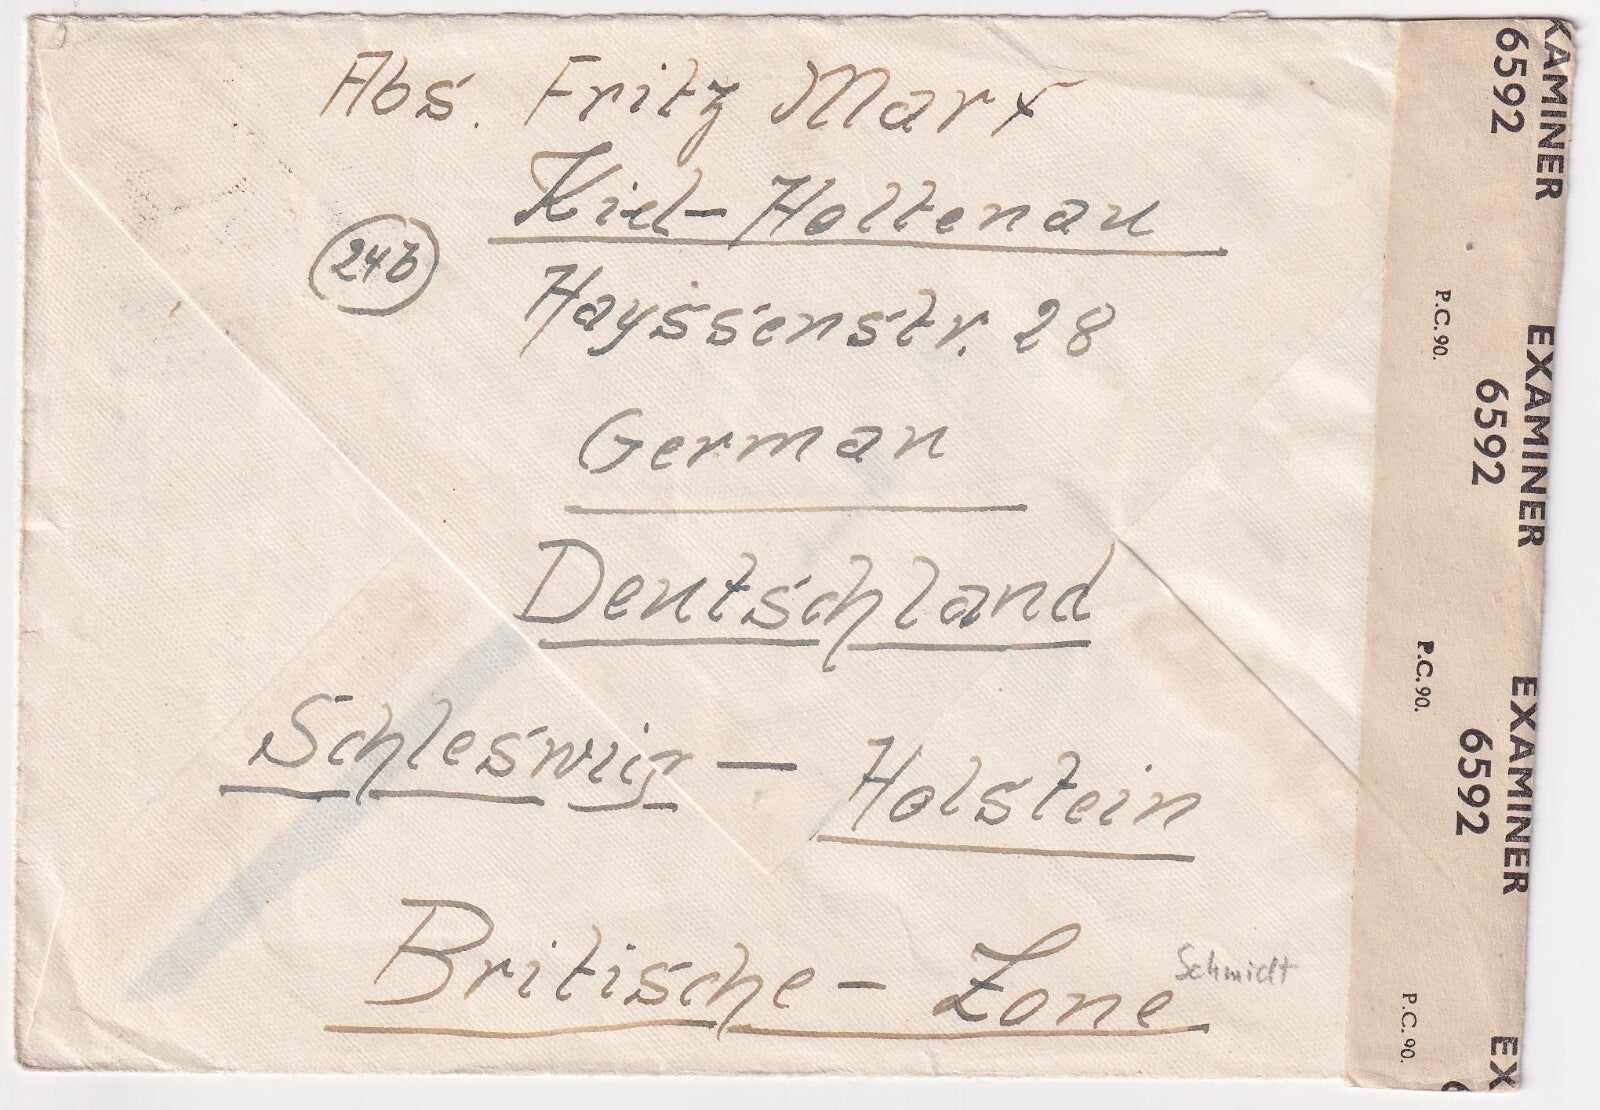 Abs. Fritz Marx
Kiel-Holtenau
24b
Hayssenstr. 28
German
Deutschland
Schleswig – Holstein
Britische – Zone
Schmidt
XAMINER
6592
P.C. 90.
EXAMINER
6592
P.C. 90.
EXAMINER
6592
P.C. 90.
EX